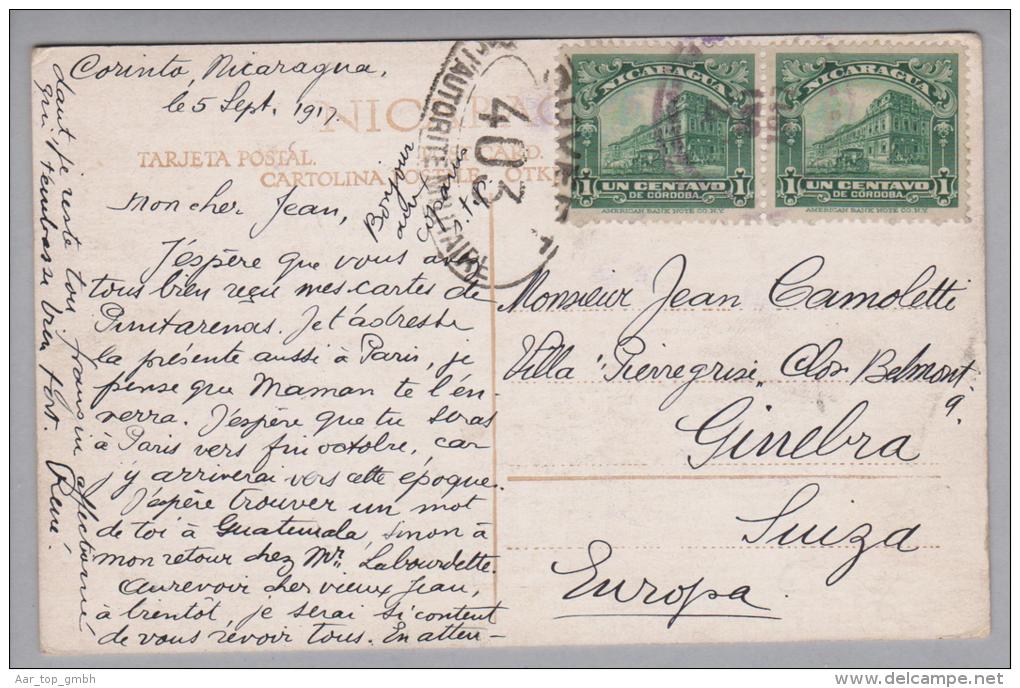 Corinto, Nicaragua,
le 5 Sept. 1917.
NICARAG
TARJETA POSTAL.
CARD.
CARTOLINA POSTALE. OTK
Mon cher Jean,
Bonjour
J'espère que vous avez
tous bien reçu mes cartes de
Puntarenas. Je t'adresse
la présente aussi à Paris, je
pense que Maman te l'en-
verra. J'espère que tu seras
à Paris vers fin octobre, car
j'y arriverai vers cette époque.
J'espère trouver un mot
de toi à Guatemala, sinon à
mon retour chez Mr. Labourdette.
Aurevoir cher vieux Jean,
à bientôt, je serai si content
de vous revoir tous. En atten-
dant je reste ton cousin affectionné
qui t'embrasse bien fort. René.
L'AUTORITE MILITAIRE
403
NICARAGUA
1 UN CENTAVO 1
DE CÓRDOBA
AMERICAN BANK NOTE CO. N.Y.
NICARAGUA
1 UN CENTAVO 1
DE CÓRDOBA
AMERICAN BANK NOTE CO. N.Y.
Monsieur Jean Camoletti
Villa "Pierregrise" Clos Belmont
9.
Ginebra
Suiza
Europa.
Aar_top_gmbh
delcampe.net